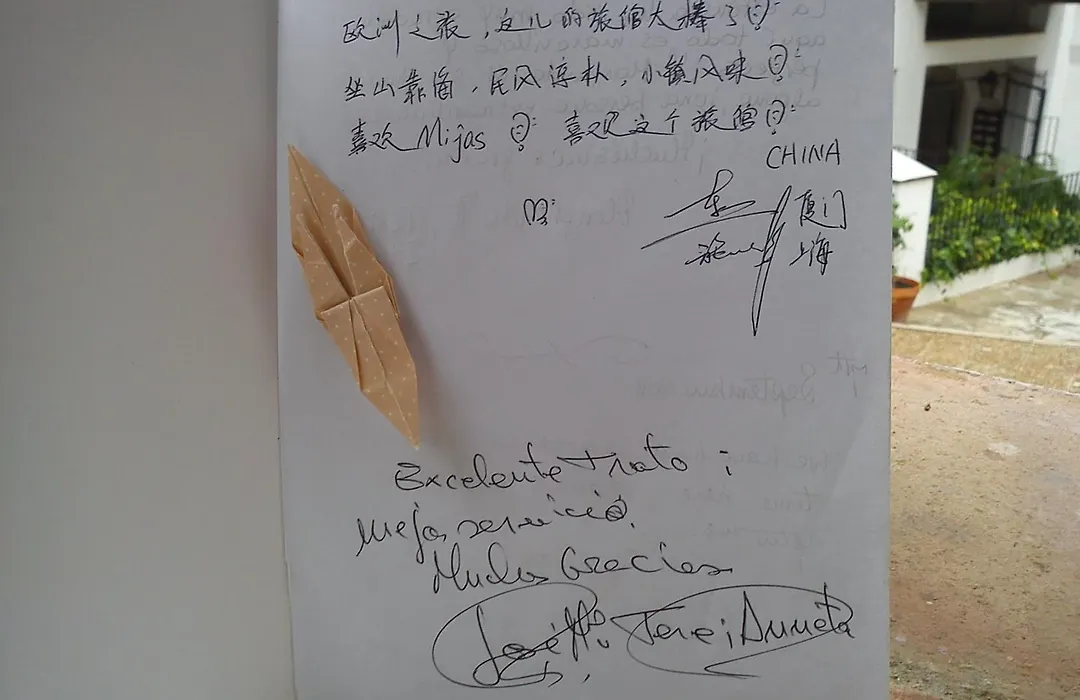 欧洲之旅，这儿的旅馆太棒了
坐山靠海，民风淳朴，小镇风味
喜欢 Mijas 喜欢这个旅馆
CHINA
厦门
上海
Excelente trato ;
Mejor servicio.
Muchas Gracias
José Tere;